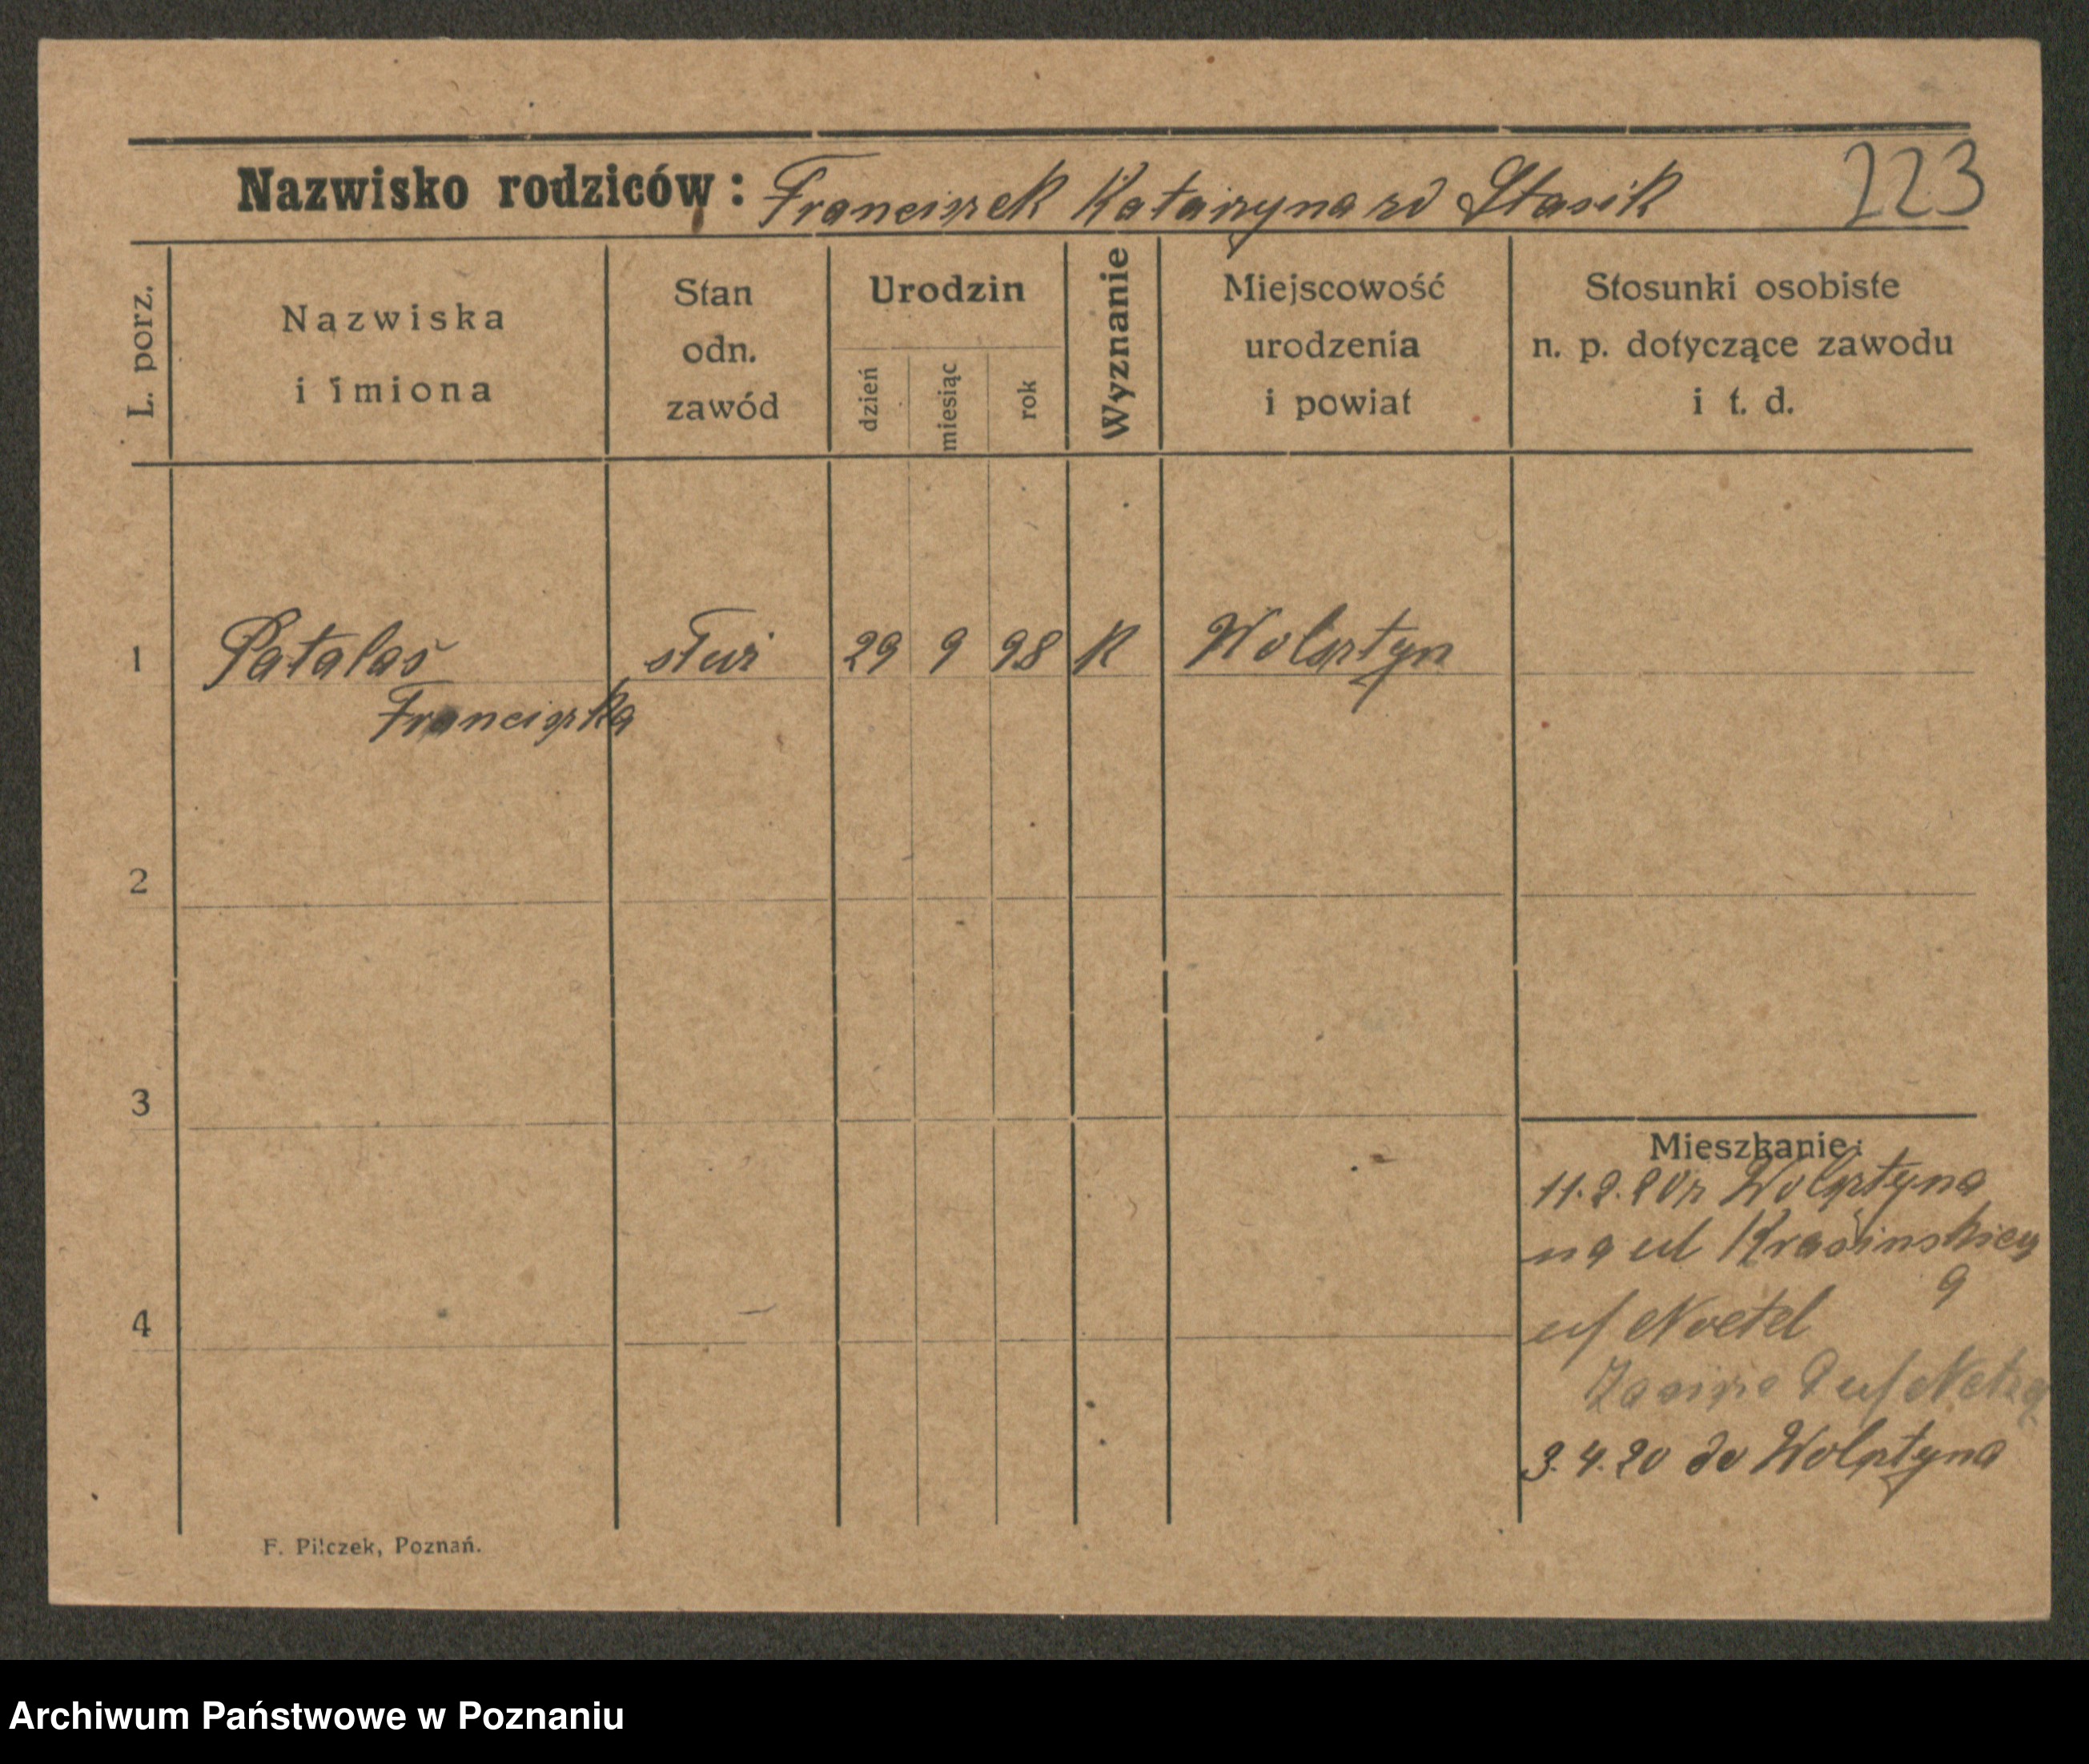 Nazwisko rodziców: Franciszek Katarzyna zd Stasik 223
L. porz.
Nazwiska
i imiona
Stan
odn.
zawód
Urodzin
dzień
miesiąc
rok
Wyznanie
Miejscowość
urodzenia
i powiat
Stosunki osobiste
n. p. dotyczące zawodu
i t. d.
1 Patalas służ 29 9 98 K Wolsztyn
Franciszka
2
3
Mieszkanie:
11.2.20 z Wolsztyna
na ul Krasinskiego
9
u/ Noetel
4
3.4.20 do Wolsztyna
F. Pilczek, Poznań.
Archiwum Państwowe w Poznaniu